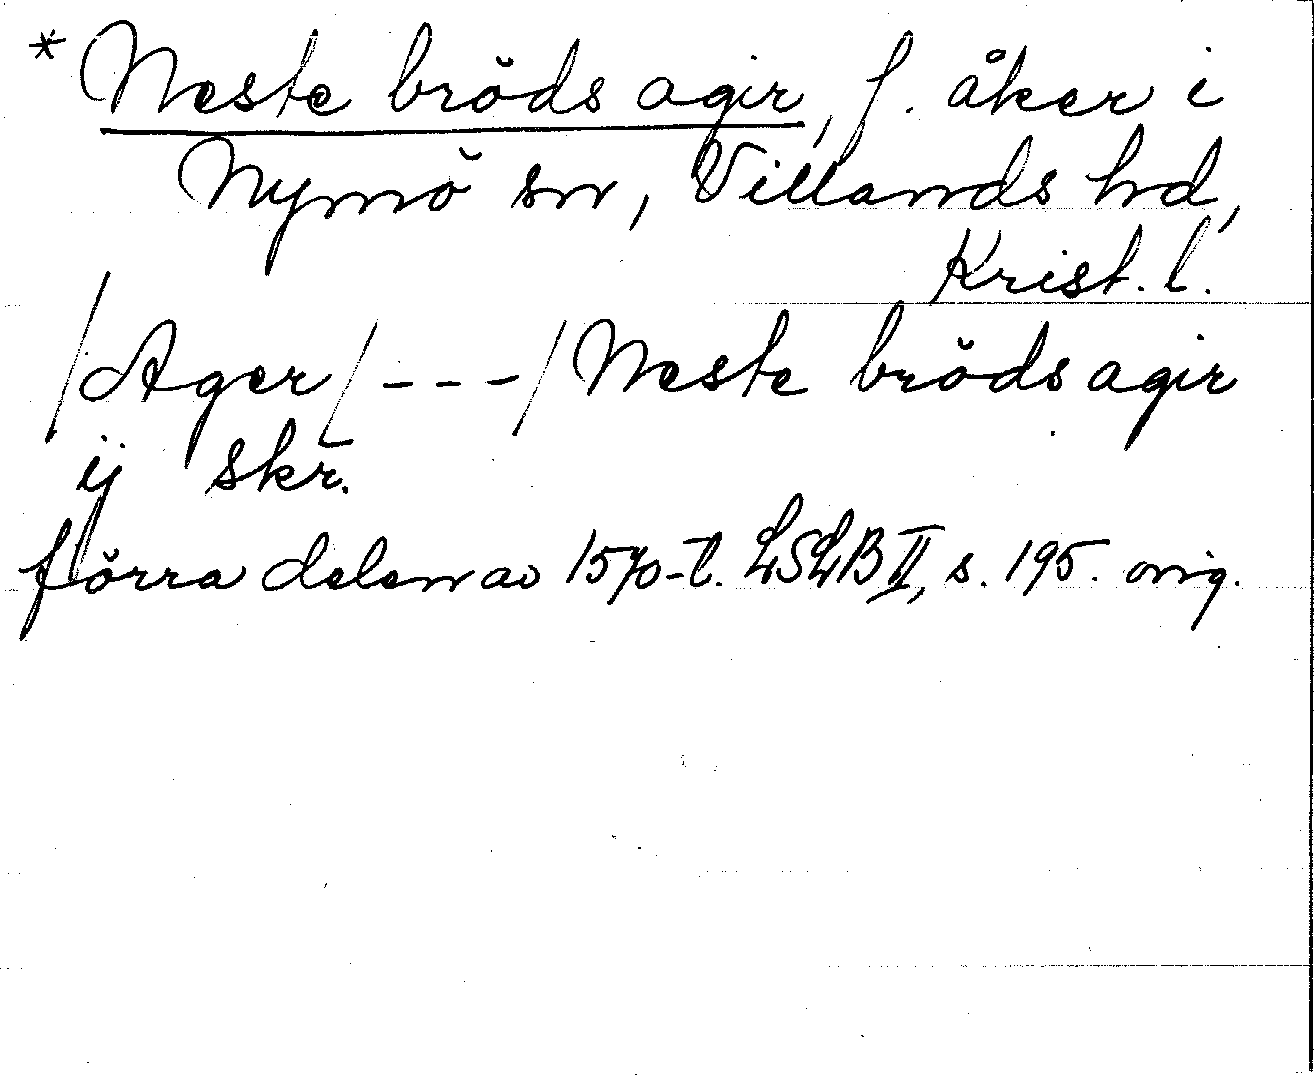 * Neste bröds agir, f. åker i
Nymö sn, Villands hd,
Krist. l.
/Ager/ - - - / Neste bröds agir
ij skr.
förra delen av 1570-t. LSLB II, s. 195. orig.